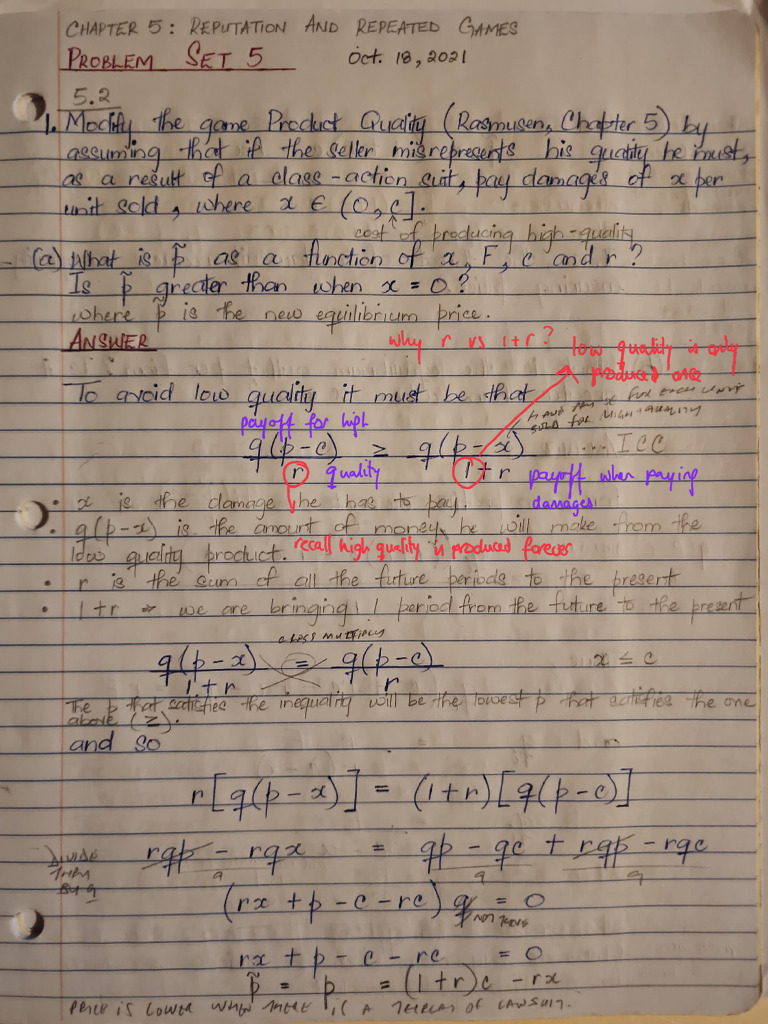 CHAPTER 5: REPUTATION AND REPEATED GAMES
PROBLEM SET 5 Oct. 18, 2021
5.2
1. Modify the game Product Quality (Rasmusen, Chapter 5) by
assuming that if the seller misrepresents his quality he must,
as a result of a class-action suit, pay damages of x per
unit sold, where x ∈ (0, c].
cost of producing high-quality
(a) What is p̃ as a function of x, F, c and r?
Is p̃ greater than when x = 0?
where p̃ is the new equilibrium price.
ANSWER
why r vs 1+r?
low quality is only
produced once
To avoid low quality it must be that
have pay x for each unit
sold for high quality
payoff for high
q(p-c)/r ≥ q(p-x)/1+r ... ICC
quality
payoff when paying
damages
• x is the damage he has to pay.
• q(p-x) is the amount of money he will make from the
low quality product.
recall high quality is produced forever
• r is the sum of all the future periods to the present
• 1+r → we are bringing 1 period from the future to the present
cross multiply
q(p-x)/1+r = q(p-c)/r x ≤ c
The p that satisfies the inequality will be the lowest p that satisfies the one
above (≥).
and so
r[q(p-x)] = (1+r)[q(p-c)]
DIVIDE
THRU
BY q
rqp - rqx = qp - qc + rqp - rqc
q q q
(rx + p - c - rc) q = 0
rx + p - c - rc = 0
p̃ = p = (1+r)c - rx
PRICE IS LOWER WHEN THERE IS A THREAT OF LAWSUIT.